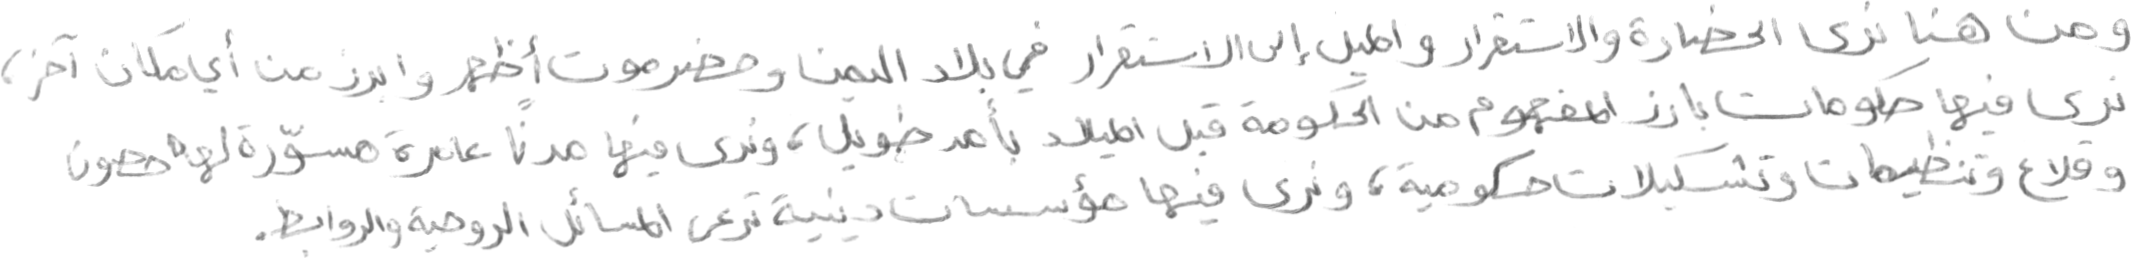 ومن هنا نرى الحضارة والاستقرار والميل إلى الاستقرار في بلاد اليمن وحضرموت أظهر وابرز من أي مكان آخر،
نرى فيها حكومات بارز المفهوم من الحكومة قبل الميلاد بأمد طويل، ونرى فيها مدنًا عامرة مسوّرة لها حصون
وقلاع وتنظيمات وتشكيلات حكومية، ونرى فيها مؤسسات دينية ترعى المسائل الروحية والروابط.